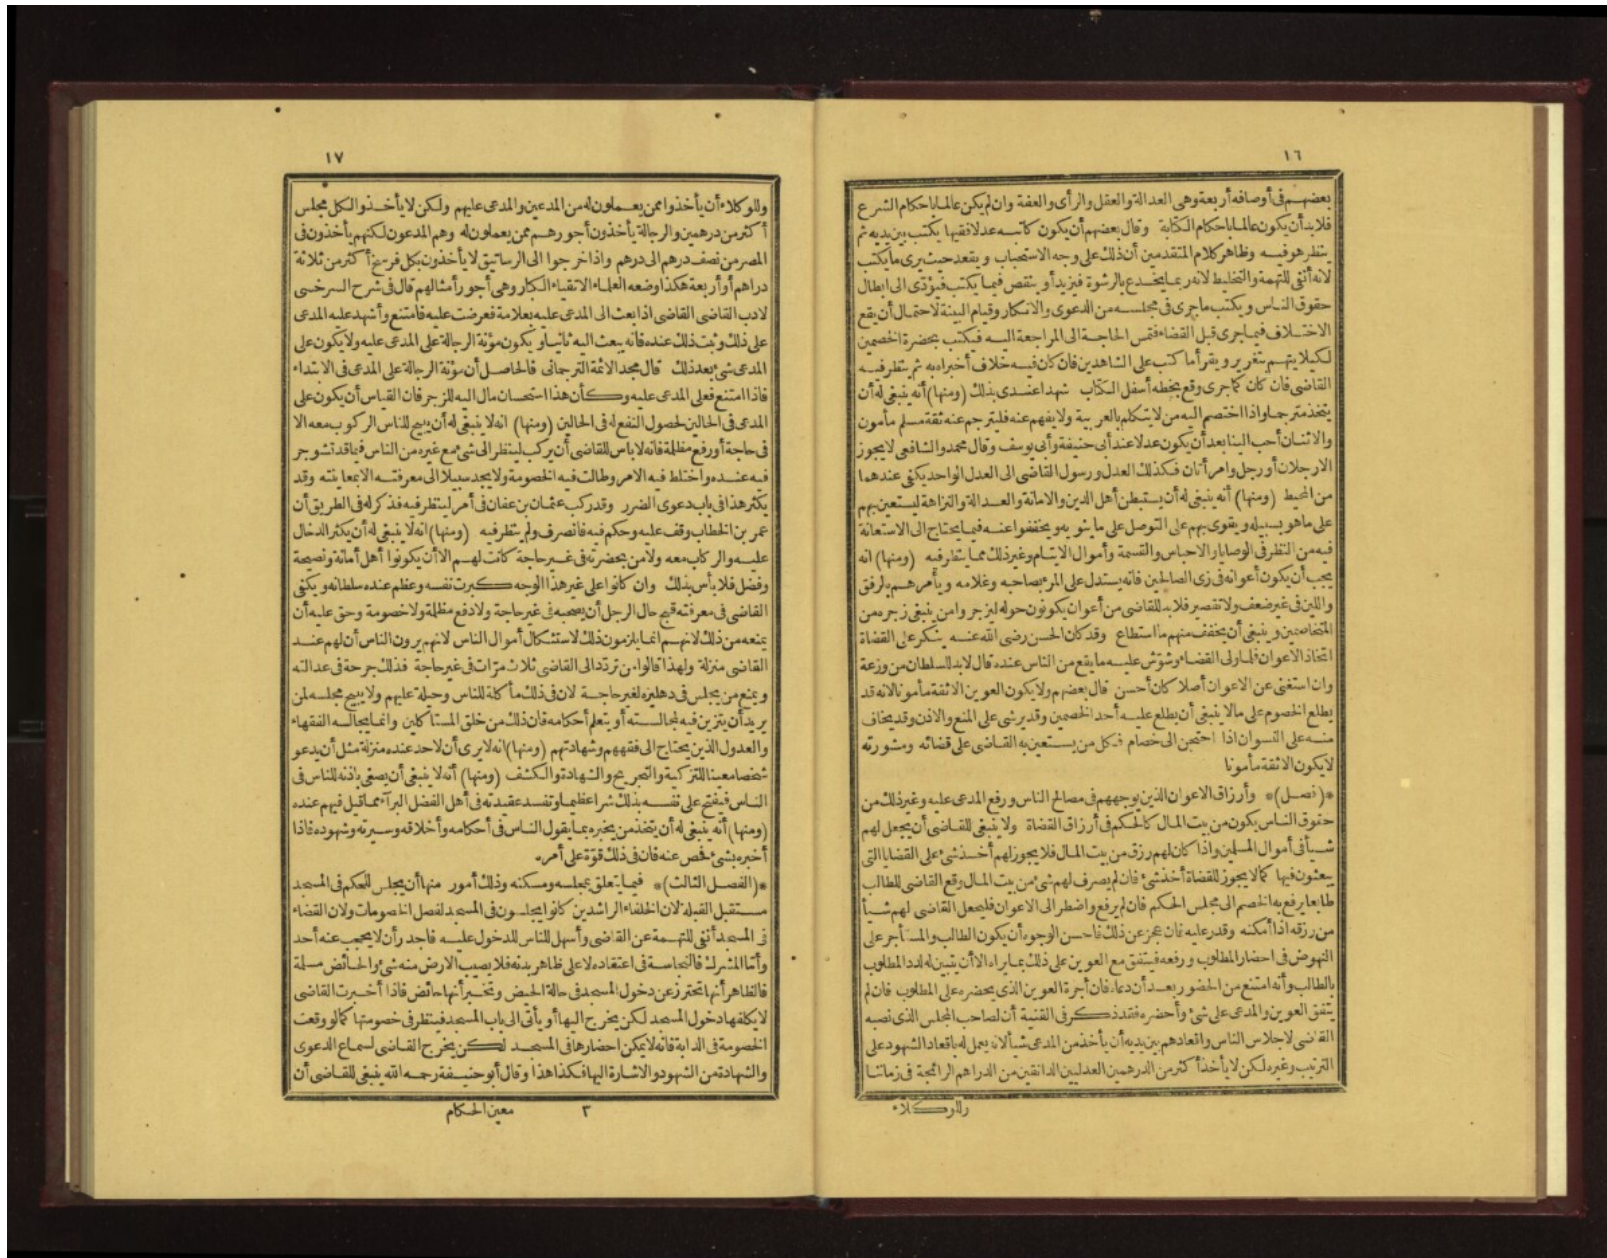 ١٦
بعضهم في أوصافه أربعة وهي العدالة والعقل والرأى والعفة وان لم يكن عالما باحكام الشرع
فلابد أن يكون عالما باحكام الكتابة وقال بعضهم أن يكون كاتبه عدلا فقيها يكتب بين يديه ثم
ينظر هو فيه وظاهر كلام المتقدمين أن ذلك على وجه الاستحباب ويقعد حيث يرى ما يكتب
لانه أنفى للتهمة والتخليط لانه ربما يخدع بالرشوة فيزيد أو ينقص فيما يكتب فيؤدى الى ابطال
حقوق الناس ويكتب ما جرى في مجلسه من الدعوى والانكار وقيام البينة لاحتمال أن يقع
الاختلاف فيما جرى قبل القضاء فتمس الحاجة الى المراجعة اليه فيكتب بحضرة الخصمين
لكيلا يتهم بتغرير ويقرأ ما كتب على الشاهدين فان كان فيه خلاف أخبراه به ثم ينظر فيه
القاضي فان كان كما جرى وقع بخطه أسفل الكتاب شهدا عندى بذلك (ومنها) أنه ينبغي له أن
يتخذ مترجما واذا اختصم اليه من لا يتكلم بالعربية ولا يفهم عنه فليترجم عنه ثقة مسلم مأمون
والاثنان أحب الينا بعد أن يكون عدلا عند أبى حنيفة وأبى يوسف وقال محمد والشافعي لا يجوز
الا رجلان أو رجل وامرأتان فكذلك العدل ورسول القاضي الى العدل الواحد يكفي عندهما
من المحيط (ومنها) أنه ينبغي له أن يستبطن أهل الدين والامانة والعدالة والنزاهة ليستعين بهم
على ما هو بسبيله ويقوى بهم على التوصل على ما ينوبه ويخففوا عنه فيما يحتاج الى الاستعانة
فيه من النظر في الوصايا والاحباس والقسمة وأموال الايتام وغير ذلك مما ينظر فيه (ومنها) انه
يجب أن يكون أعوانه في زى الصالحين فانه يستدل على المرء بصاحبه وغلامه ويأمرهم بالرفق
واللين في غير ضعف ولا تقصير فلابد للقاضي من أعوان يكونون حوله ليزجروا من ينبغي زجره من
المتخاصمين وينبغي أن يخفف منهم ما استطاع وقد كان الحسن رضى الله عنه ينكر على القضاة
اتخاذ الاعوان فلما ولى القضاء وشوش عليه ما يقع من الناس عنده قال لابد للسلطان من وزعة
وان استغنى عن الاعوان أصلا كان أحسن قال بعضهم ولا يكون العوين الا ثقة مأمونا لانه قد
يطلع الخصوم على ما لا ينبغي أن يطلع عليه أحد الخصمين وقد يرشى على المنع والاذن وقد يخاف
منه على النسوان اذا احتجن الى خصام فكل من يستعين به القاضي على قضائه ومشورته
لا يكون الا ثقة مأمونا
*(فصل)* وأرزاق الاعوان الذين يوجههم في مصالح الناس ورفع المدعى عليه وغير ذلك من
حقوق الناس يكون من بيت المال كالحكم في أرزاق القضاة ولا ينبغي للقاضي أن يجعل لهم
شيأ في أموال المسلمين واذا كان لهم رزق من بيت المال فلا يجوز لهم أخذ شئ على القضايا التى
يبعثون فيها كما لا يجوز للقضاة أخذ شئ فان لم يصرف لهم شئ من بيت المال وقع القاضي للطالب
طابعا يرفع به الخصم الى مجلس الحكم فان لم يرفع واضطر الى الاعوان فليجعل القاضي لهم شيأ
من رزقه اذا أمكنه وقدر عليه فان عجز عن ذلك فأحسن الوجوه أن يكون الطالب والمستأجر على
النهوض في احضار المطلوب ورفعه فيتفق مع العوين على ذلك بما يراه الا أن يتبين له لدد المطلوب
بالطالب وأنه امتنع من الحضور بعد أن دعاه فان أجرة العوين الذى يحضره على المطلوب فان لم
يتفق العوين والمدعى على شئ وأحضره فقد ذكر في القنية أن لصاحب المجلس الذى نصبه
القاضى لاجلاس الناس واقعادهم بين يديه أن يأخذ من المدعى شيأ لانه يعمل له باقعاد الشهود على
الترتيب وغيره لكن لا يأخذ أكثر من الدرهمين العدليين الدانقين من الدراهم الرائجة في زماننا
وللوكلاء
١٧
وللوكلاء أن يأخذوا ممن يعملون له من المدعين والمدعى عليهم ولكن لا يأخذوا لكل مجلس
أكثر من درهمين والرجالة يأخذون أجورهم ممن يعملون له وهم المدعون لكنهم يأخذون في
المصر من نصف درهم الى درهم واذا خرجوا الى الرساتيق لا يأخذون بكل فرسخ أكثر من ثلاثة
دراهم أو أربعة هكذا وضعه العلماء الاتقياء الكبار وهى أجور أمثالهم قال في شرح السرخسى
لادب القاضي القاضي اذا بعث الى المدعى عليه بعلامة فعرضت عليه فامتنع وأشهد عليه المدعى
على ذلك وثبت ذلك عنده فانه يبعث اليه ثانيا ويكون مؤنة الرجالة على المدعى عليه ولا يكون على
المدعى شئ بعد ذلك قال مجد الائمة الترجمانى فالحاصل أن مؤنة الرجالة على المدعى في الابتداء
فاذا امتنع فعلى المدعى عليه وكأن هذا استحسان مال اليه للزجر فان القياس أن يكون على
المدعى في الحالين لحصول النفع له في الحالين (ومنها) انه لا ينبغي له أن يبيح للناس الركوب معه الا
في حاجة أو رفع مظلمة فانه لا بأس للقاضي أن يركب لينظر الى شئ مع غيره من الناس فيما قد تشوجر
فيه عنده واختلط فيه الامر وطالت فيه الخصومة ولا يجد سبيلا الى معرفته الا بمعاينته وقد
يكثر هذا في باب دعوى الضرر وقد ركب عثمان بن عفان في أمر لينظر فيه فذكر له في الطريق أن
عمر بن الخطاب وقف عليه وحكم فيه فانصرف ولم ينظر فيه (ومنها) انه لا ينبغي له أن يكثر الدخال
عليه والركاب معه ولا من يحضرته في غير حاجة كانت لهم الا أن يكونوا أهل أمانة ونصيحة
وفضل فلا بأس بذلك وان كانوا على غير هذا الوجه كبرت نفسه وعظم عنده سلطانه ويكفى
القاضي في معرفته قبح حال الرجل أن يصحبه في غير حاجة ولا دفع مظلمة ولا خصومة وحق عليه أن
يمنعه من ذلك لانهم انما يلزمون ذلك لاستئكال أموال الناس لانهم يرون الناس أن لهم عند
القاضى منزلة ولهذا قالوا من تردد الى القاضي ثلاث مرات في غير حاجة فذلك جرحة في عدالته
ويمنع من يجلس في دهليزه لغير حاجة لان في ذلك مأكلة للناس وحيلة عليهم ولا يبيح مجلسه لمن
يريد أن يتزين فيه لمجالسته أو يتعلم أحكامه فان ذلك من خلق المستأكلين وانما يجالسه الفقهاء
والعدول الذين يحتاج الى فقههم وشهادتهم (ومنها) انه لا يرى أن لاحد عنده منزلة مثل أن يدعو
شخصا معينا للتزكية والتجريح والشهادة والكشف (ومنها) أنه لا ينبغي أن يصغى باذنه للناس في
الناس فيفتح على نفسه بذلك شرا عظيما وتفسد عقيدته في أهل الفضل البرآء مما قيل فيهم عنده
(ومنها) أنه ينبغي له أن يتخذ من يخبره بما يقول الناس في أحكامه وأخلاقه وسيرته وشهوده فاذا
أخبره بشئ فحص عنه فان في ذلك قوة على أمره
*(الفصل الثالث)* فيما يتعلق بمجلسه ومسكنه وذلك أمور منها أن يجلس للحكم في المسجد
مستقبل القبلة لان الخلفاء الراشدين كانوا يجلسون في المسجد لفصل الخصومات ولان القضاء
في المسجد أنفى للتهمة عن القاضي وأسهل للناس للدخول عليه فاجدر أن لا يحجب عنه أحد
وأما المشرك فالنجاسة في اعتقاده لا على ظاهر بدنه فلا يصيب الارض منه شئ والحائض مسلمة
فالظاهر أنها تحترز عن دخول المسجد في حالة الحيض وتخبر أنها حائض فاذا أخبرت القاضي
لا يكلفها دخول المسجد لكن يخرج اليها أو يأتى الى باب المسجد فينظر في خصومتها كما لو وقعت
الخصومة في الدابة فانه لا يمكن احضارها في المسجد لكن يخرج القاضي لسماع الدعوى
والشهادة من الشهود والاشارة اليها فكذا هذا وقال أبو حنيفة رحمه الله ينبغي للقاضي أن
٣ معين الحكام